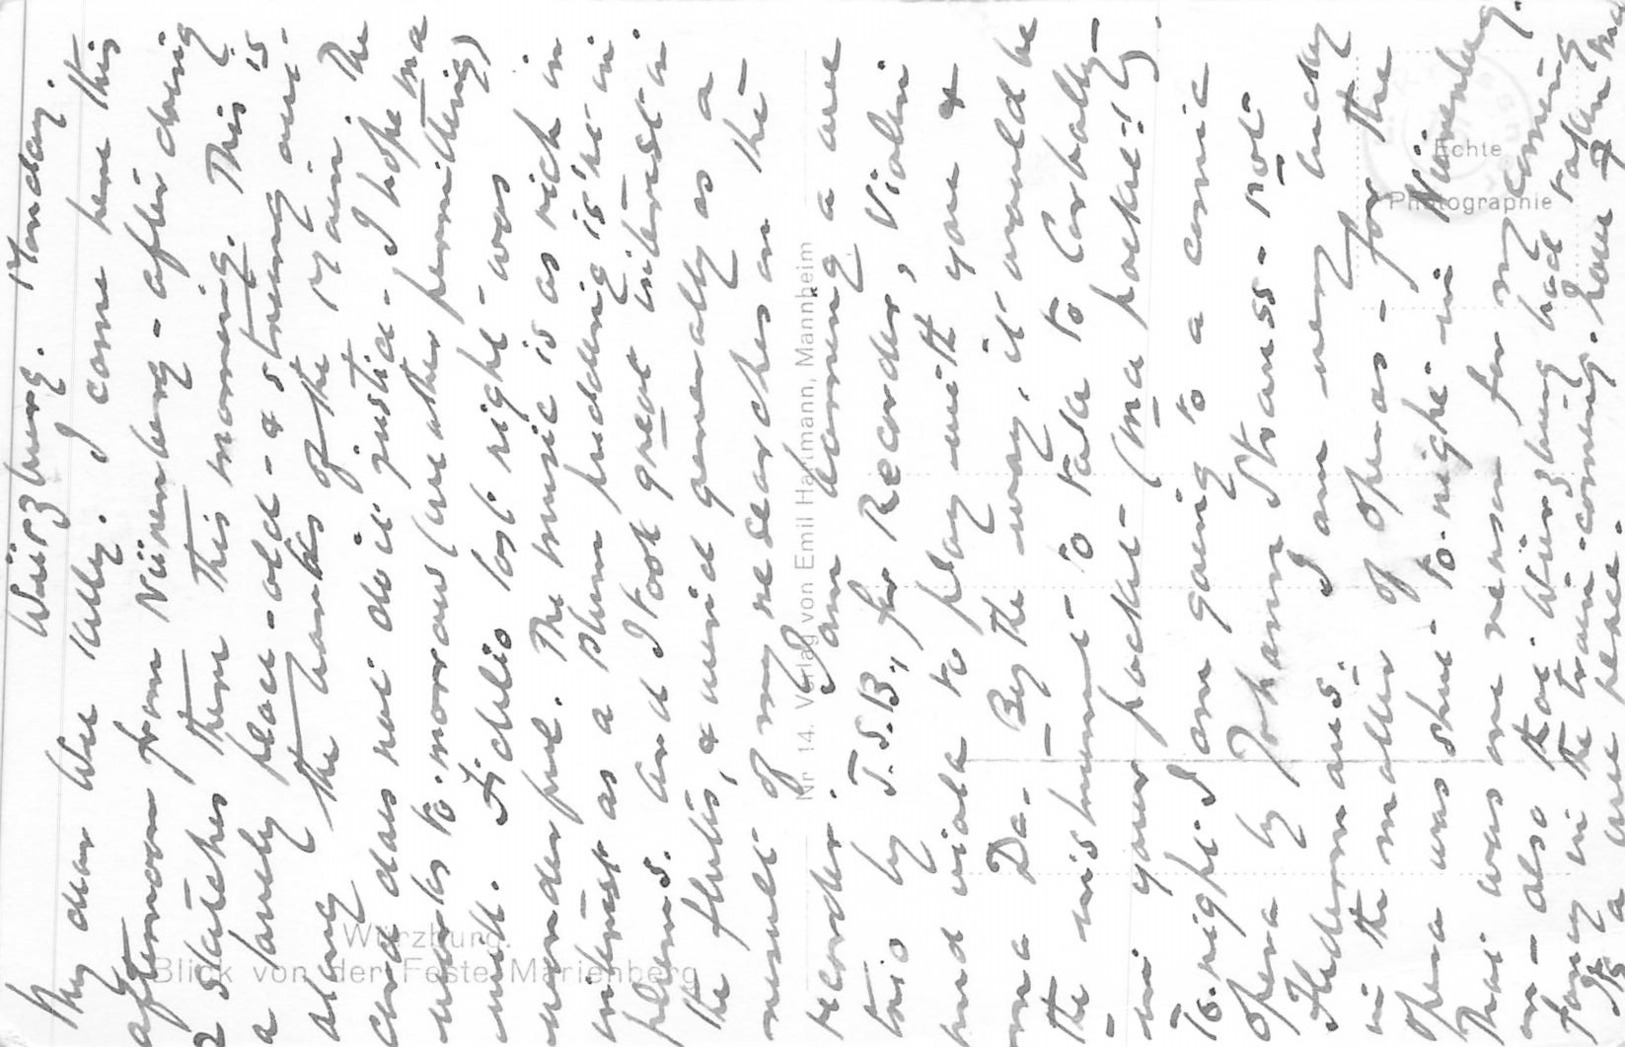 Würzburg. Monday.
My dear Wee Willy. I came here this
afternoon from Nürnberg - after doing
2 sketches there this morning. This is
a lovely place - old - & strung out
along the banks of the Main. The
card does not do it justice - I hope ma
works to-morrow (weather permitting)
will. Fidelio last night - was
wonderful. The music is as rich in
interest as a plum pudding is in
plums. And I took great interest in
the flutes, & wind generally as a
result of my researches on the
recorder. I am learning a wee
trio by J.S.B., for Recorder, Violin
and viola to play with you &
ma Da. By the way, it would be
the instrument to take to Carbally -
in your pocket - (ma pocket!!)
To-night I am going to a comic
Opera by Johann Strauss - not
Fledermaus. I am very lucky
in the matter of Operas - for the
Opera was shut - to-night - in Nürnberg.
That was one reason for my coming
on - also that Würzburg had taken my
fancy in the train - coming.
Its a wee place.
Nr 14. Verlag von Emil Hartmann, Mannheim
Echte
Photographie
Würzburg.
Blick von der Feste Marienberg